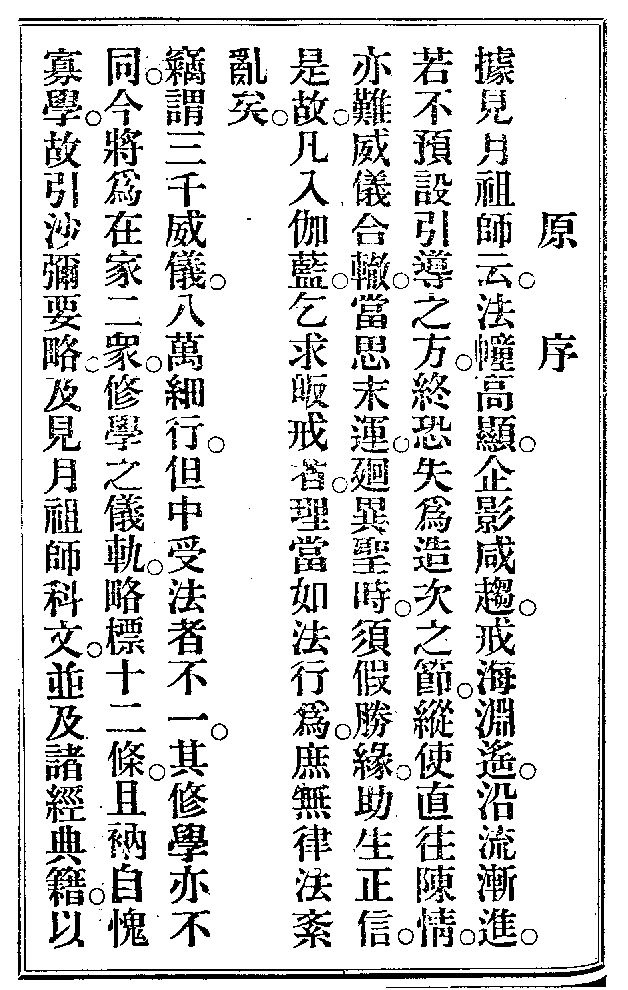 原序
據見月祖師云。法幢高顯。企影咸趨。戒海淵遙。沿流漸進。
若不預設引導之方。終恐失爲造次之節。縱使直往陳情。
亦難威儀合轍。當思末運。迴異聖時。須假勝緣。助生正信。
是故。凡入伽藍。乞求皈戒者。理當如法行爲。庶無律法紊
亂矣。
竊謂三千威儀。八萬細行。但中受法者不一。其修學亦不
同。今將爲在家二衆。修學之儀軌。略標十二條。且衲自愧
寡學。故引沙彌要略。及見月祖師科文。並及諸經典籍。以